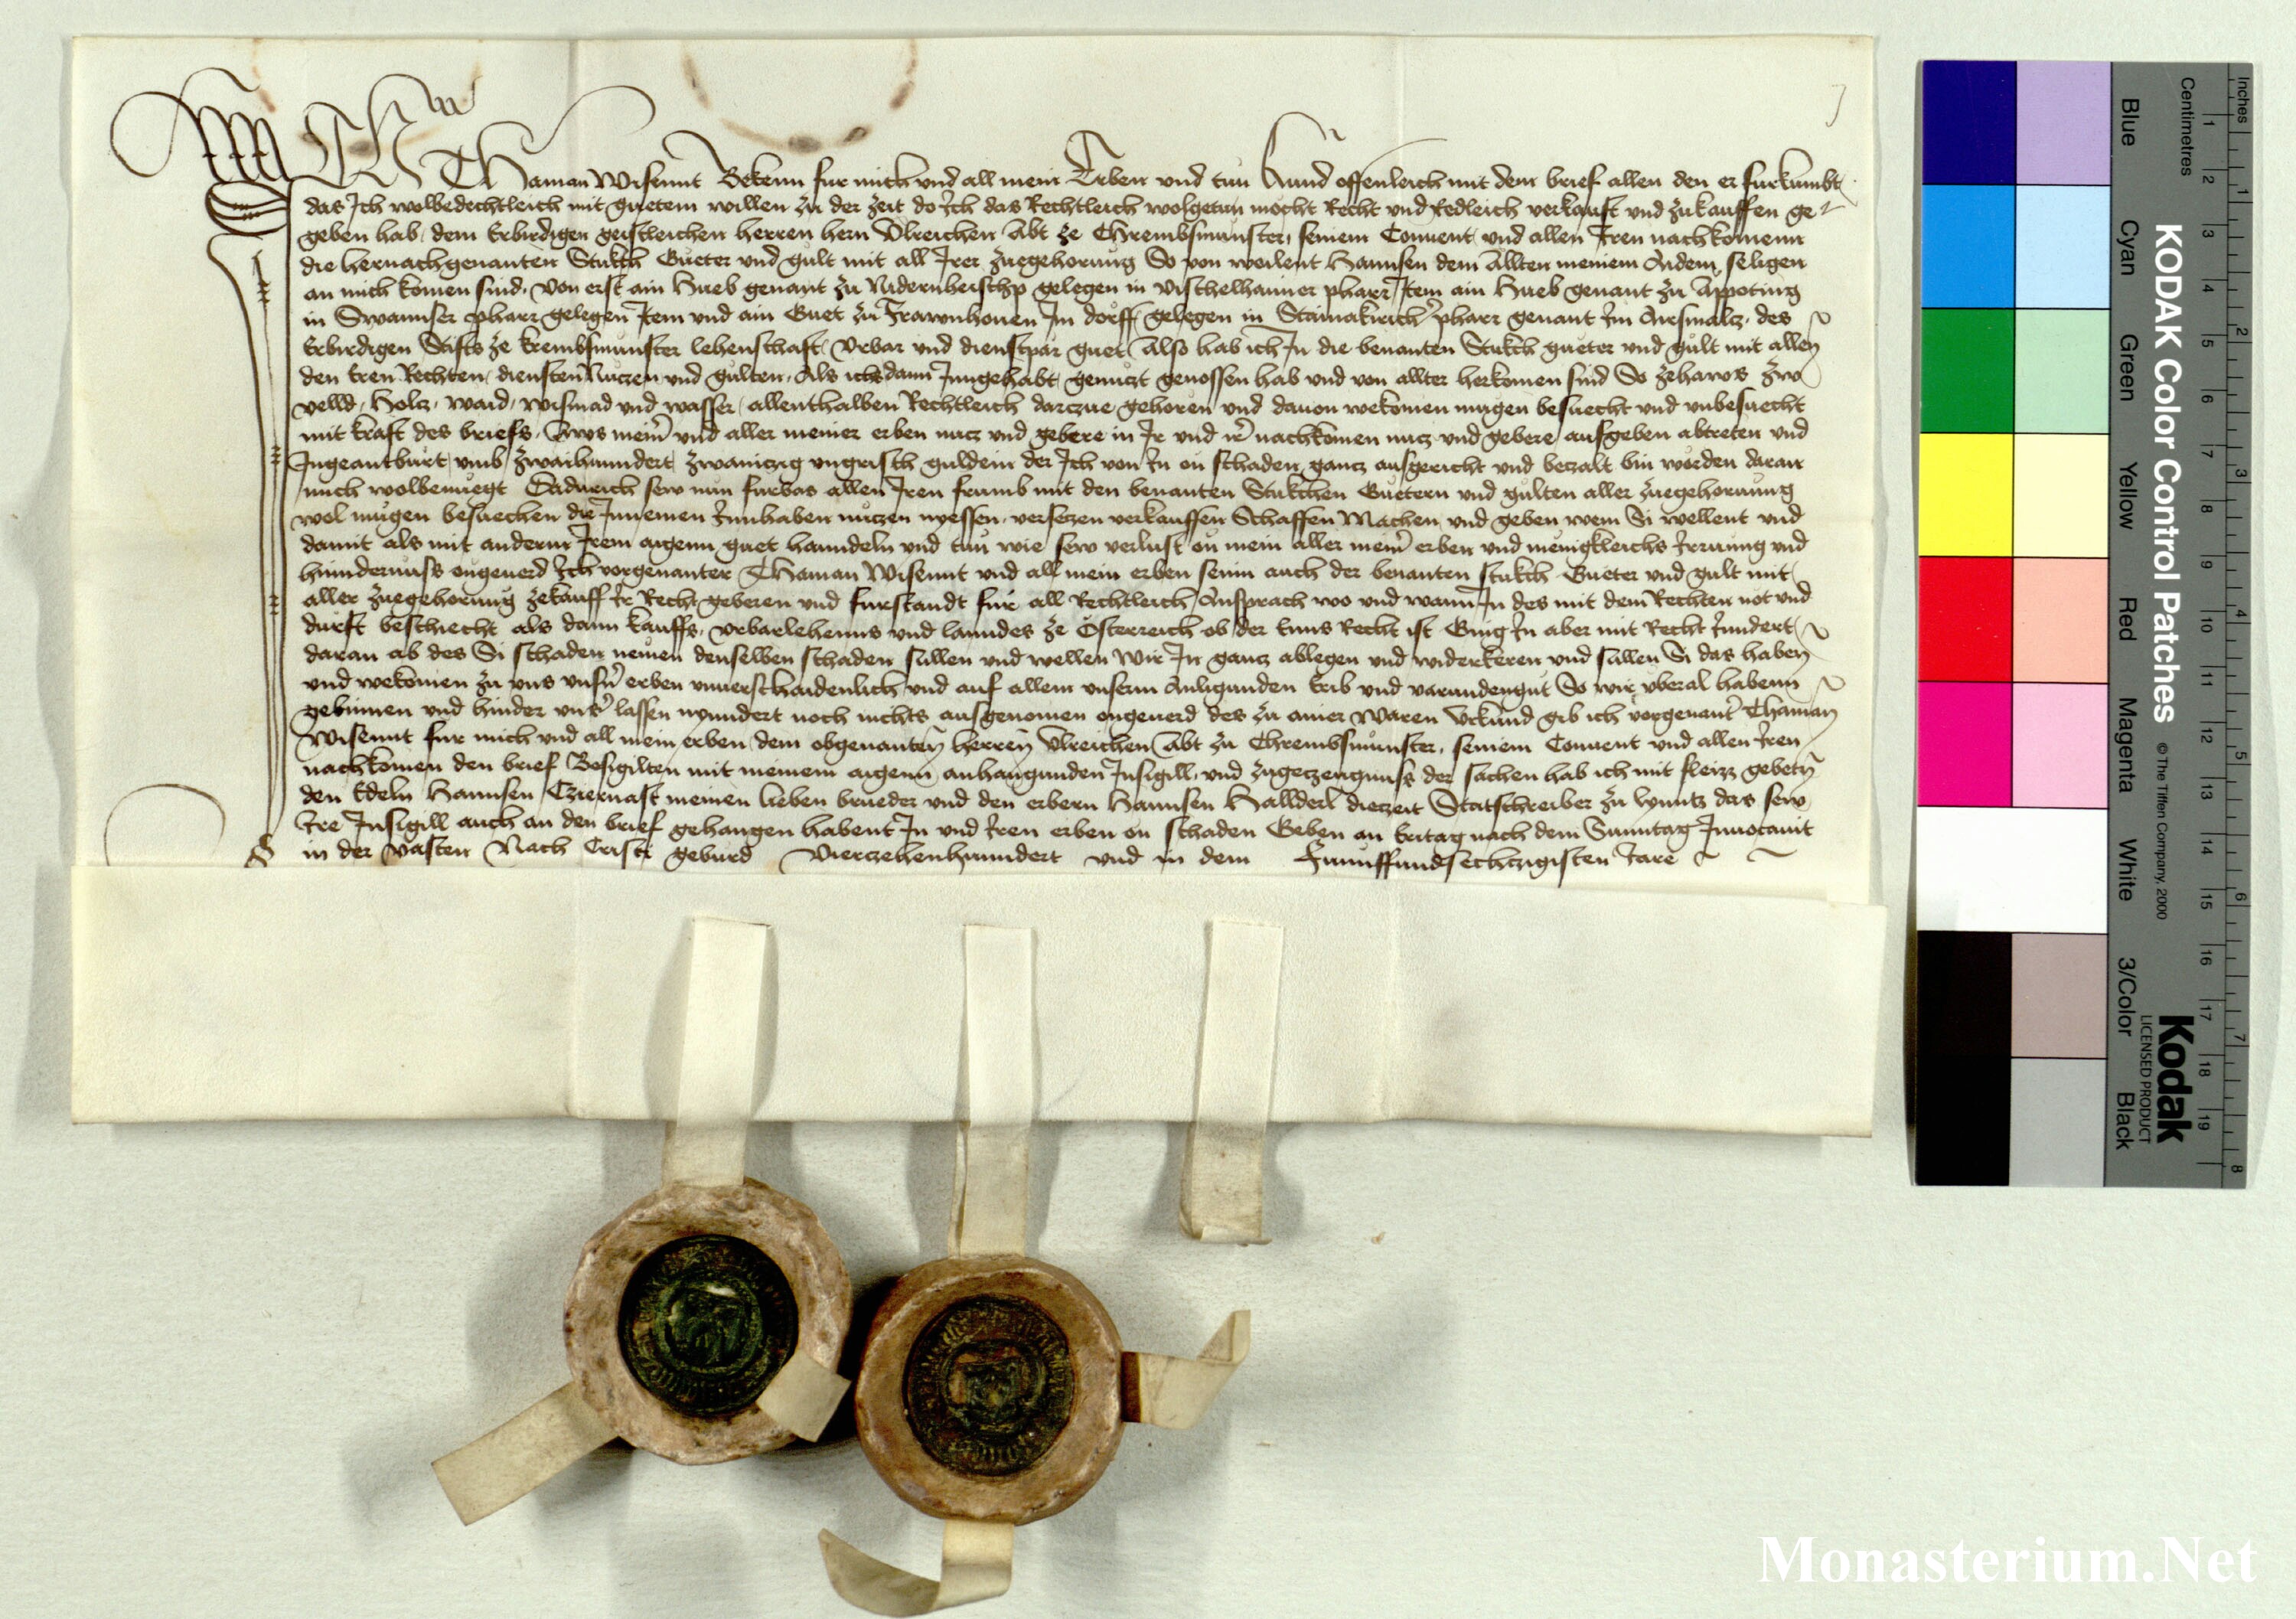 Ich Thaman Wisennt Bekenn fur mich und all mein Erben und tun kund offenleich mit dem brief allen den er furkumbt
das Ich wolbedechtleich mit guetem willen zu der zeit do Ich das Rechtleich wolgetun mocht Recht und Redleich verkauft und zukauffen ge
geben hab dem Erbirdigen geistleichen herren hern Ulreichen Abt ze Chrembsmunster seinem Conuent und allen Iren nachkomenn
die hernachgenanten Stukch Gueter und gult mit all Irer zuegehorung So von weilent Hannsen dem Allten meinem Andem seligen
an mich komen sind. Von erst ain Hueb genant zu gelegen in Vischelhaimer pharr Item ain Hueb genant zu Appoting
in Swannser pharr gelegen Item und ain Guet zu Frawnhouen Im dorff gelegen in pharr genant Im des
Erbirdigen Stifts ze krembsmunster lehenschaft Urbar und dienstpar guet Also hab ich In die benanten Stukch gueter und gult mit allen
den eren Rechten diensten Nuczen und gulten Als ichs dann Inngehabt genuczt genossen hab und von allter herkomen sind So zehaws zw
velld Holcz waid wismad und wasser allenthalben Rechtleich darczue gehoren und dauon wekomen mugen besuecht und unbesuecht
mit kraft des briefs Aws meiner und aller meiner erben nucz und gebere in Ir und ir nachkomen nucz und gebere aufgeben abtreten und
Ingeantburt umb zwaihundert zwainczig ungrisch guldein der Ich von In on schaden gancz ausgericht und beczalt bin worden daran
mich wolbenuegt Dadurich sew nun furbas allen Iren frumb mit den benanten Stukchen Guetern und gulten aller zuegehornung
wol mugen besuechen die Innemen Innhaben nuczen nyessen verseczen verkauffen Schaffen Machen und geben wem Si wellent und
damit als mit anderm Irem aigenn guet hanndeln und tun wie sew verlust on mein aller meiner erben und menigkleichs Irrung und
hindernuss ongeuerd Ich vorgenanter Thaman Wisennt und all mein erben seinn auch der benanten stukch Gueter und gult mit
aller zuegehorung zekauff Ir Recht geberen und furstandt fur all Rechtleich Ansprach wo und wann In des mit dem Rechten not und
durft beschiecht als dann kauffs urbarlehenns und lanndes ze Osterreich ob der Enns Recht ist Gieng In aber mit Recht Inndert
daran ab des Si schaden nemen denselben schaden sullen und wellen wir In gancz ablegen und widerkeren und sullen Si das haben
und wekomen zu uns unsern erben unuerschaidenlich und auf allem unserm Anligunden Erib und varundengut So wir uberal habenn
gebinnen und hinder uns lassen nynndert noch nichts ausgenomen ongeuerd des zu ainer Waren Urkund gib ich vorgenant Thaman
Wisennt fur mich und all mein erben dem obgenanten herren Ulreichen Abt zu Chrembsmunster seinem Conuent und allen Iren
nachkomen den brief Besigilten mit meinem aigenn anhangunden Insigill und zugeczeugnuss der sachen hab ich mit fleizz gebeten
den Edeln Hannsen Cziernast meinen lieben brueder und den erbern Hannsen Hallderl dieczeit Statschreiber zu Lynntz das sew
Ire Insigill auch an den brief gehangen habent In und Iren erben on schaden Geben an Eritag nach dem Sunntag Inuocauit
in der vasten Nach Cristi geburd Vierczehenhunndert und in dem Funnffundsechtzigisten Iare
KODAK Color Control Patches © The Tiffen Company, 2000
Kodak
LICENSED PRODUCT
Inches 1 2 3 4 5 6 7 8
Centimetres 1 2 3 4 5 6 7 8 9 10 11 12 13 14 15 16 17 18 19
Blue Cyan Green Yellow Red Magenta White 3/Color Black
Monasterium.Net